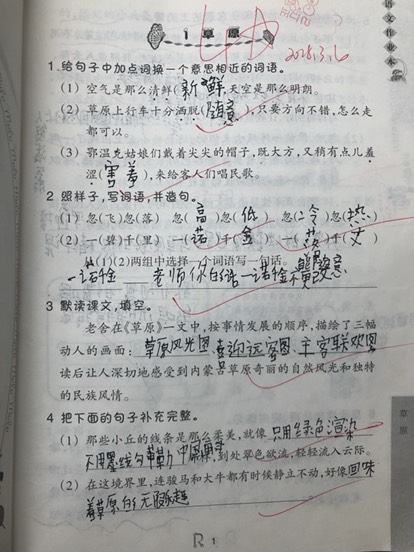 语文作业本
2018.3.16
1 草原
1 给句子中加点词换一个意思相近的词语。
(1) 空气是那么清鲜(新鲜),天空是那么明朗。
(2) 草原上行车十分洒脱(随意),只要方向不错,怎么走
都可以。
(3) 鄂温克姑娘们戴着尖尖的帽子,既大方,又稍有点儿羞
涩(害羞),来给客人们唱民歌。
2 照样子,写词语,并造句。
(1) 忽(飞)忽(落) 忽(高)忽(低) 忽(冷)忽(热)
(2) 一(碧)千(里) 一(诺)千(金) 一(落)千(丈)
从(1)(2)两组中选择一个词语写一句话。
一诺千金 老师你的话一诺千金不
3 默读课文,填空。
老舍在《草原》一文中,按事情发展的顺序,描绘了三幅
动人的画面:草原风光图、喜迎远客图、主客联欢图
读后让人深切地感受到内蒙古草原奇丽的自然风光和独特
的民族风情。
4 把下面的句子补充完整。
(1) 那些小丘的线条是那么柔美,就像只用绿色渲染
不用墨线勾勒 中国画 到处翠色欲流,轻轻流入云际。
(2) 在这境界里,连骏马和大牛都有时候静立不动,好像回味
着草原的无限
草原
R 1